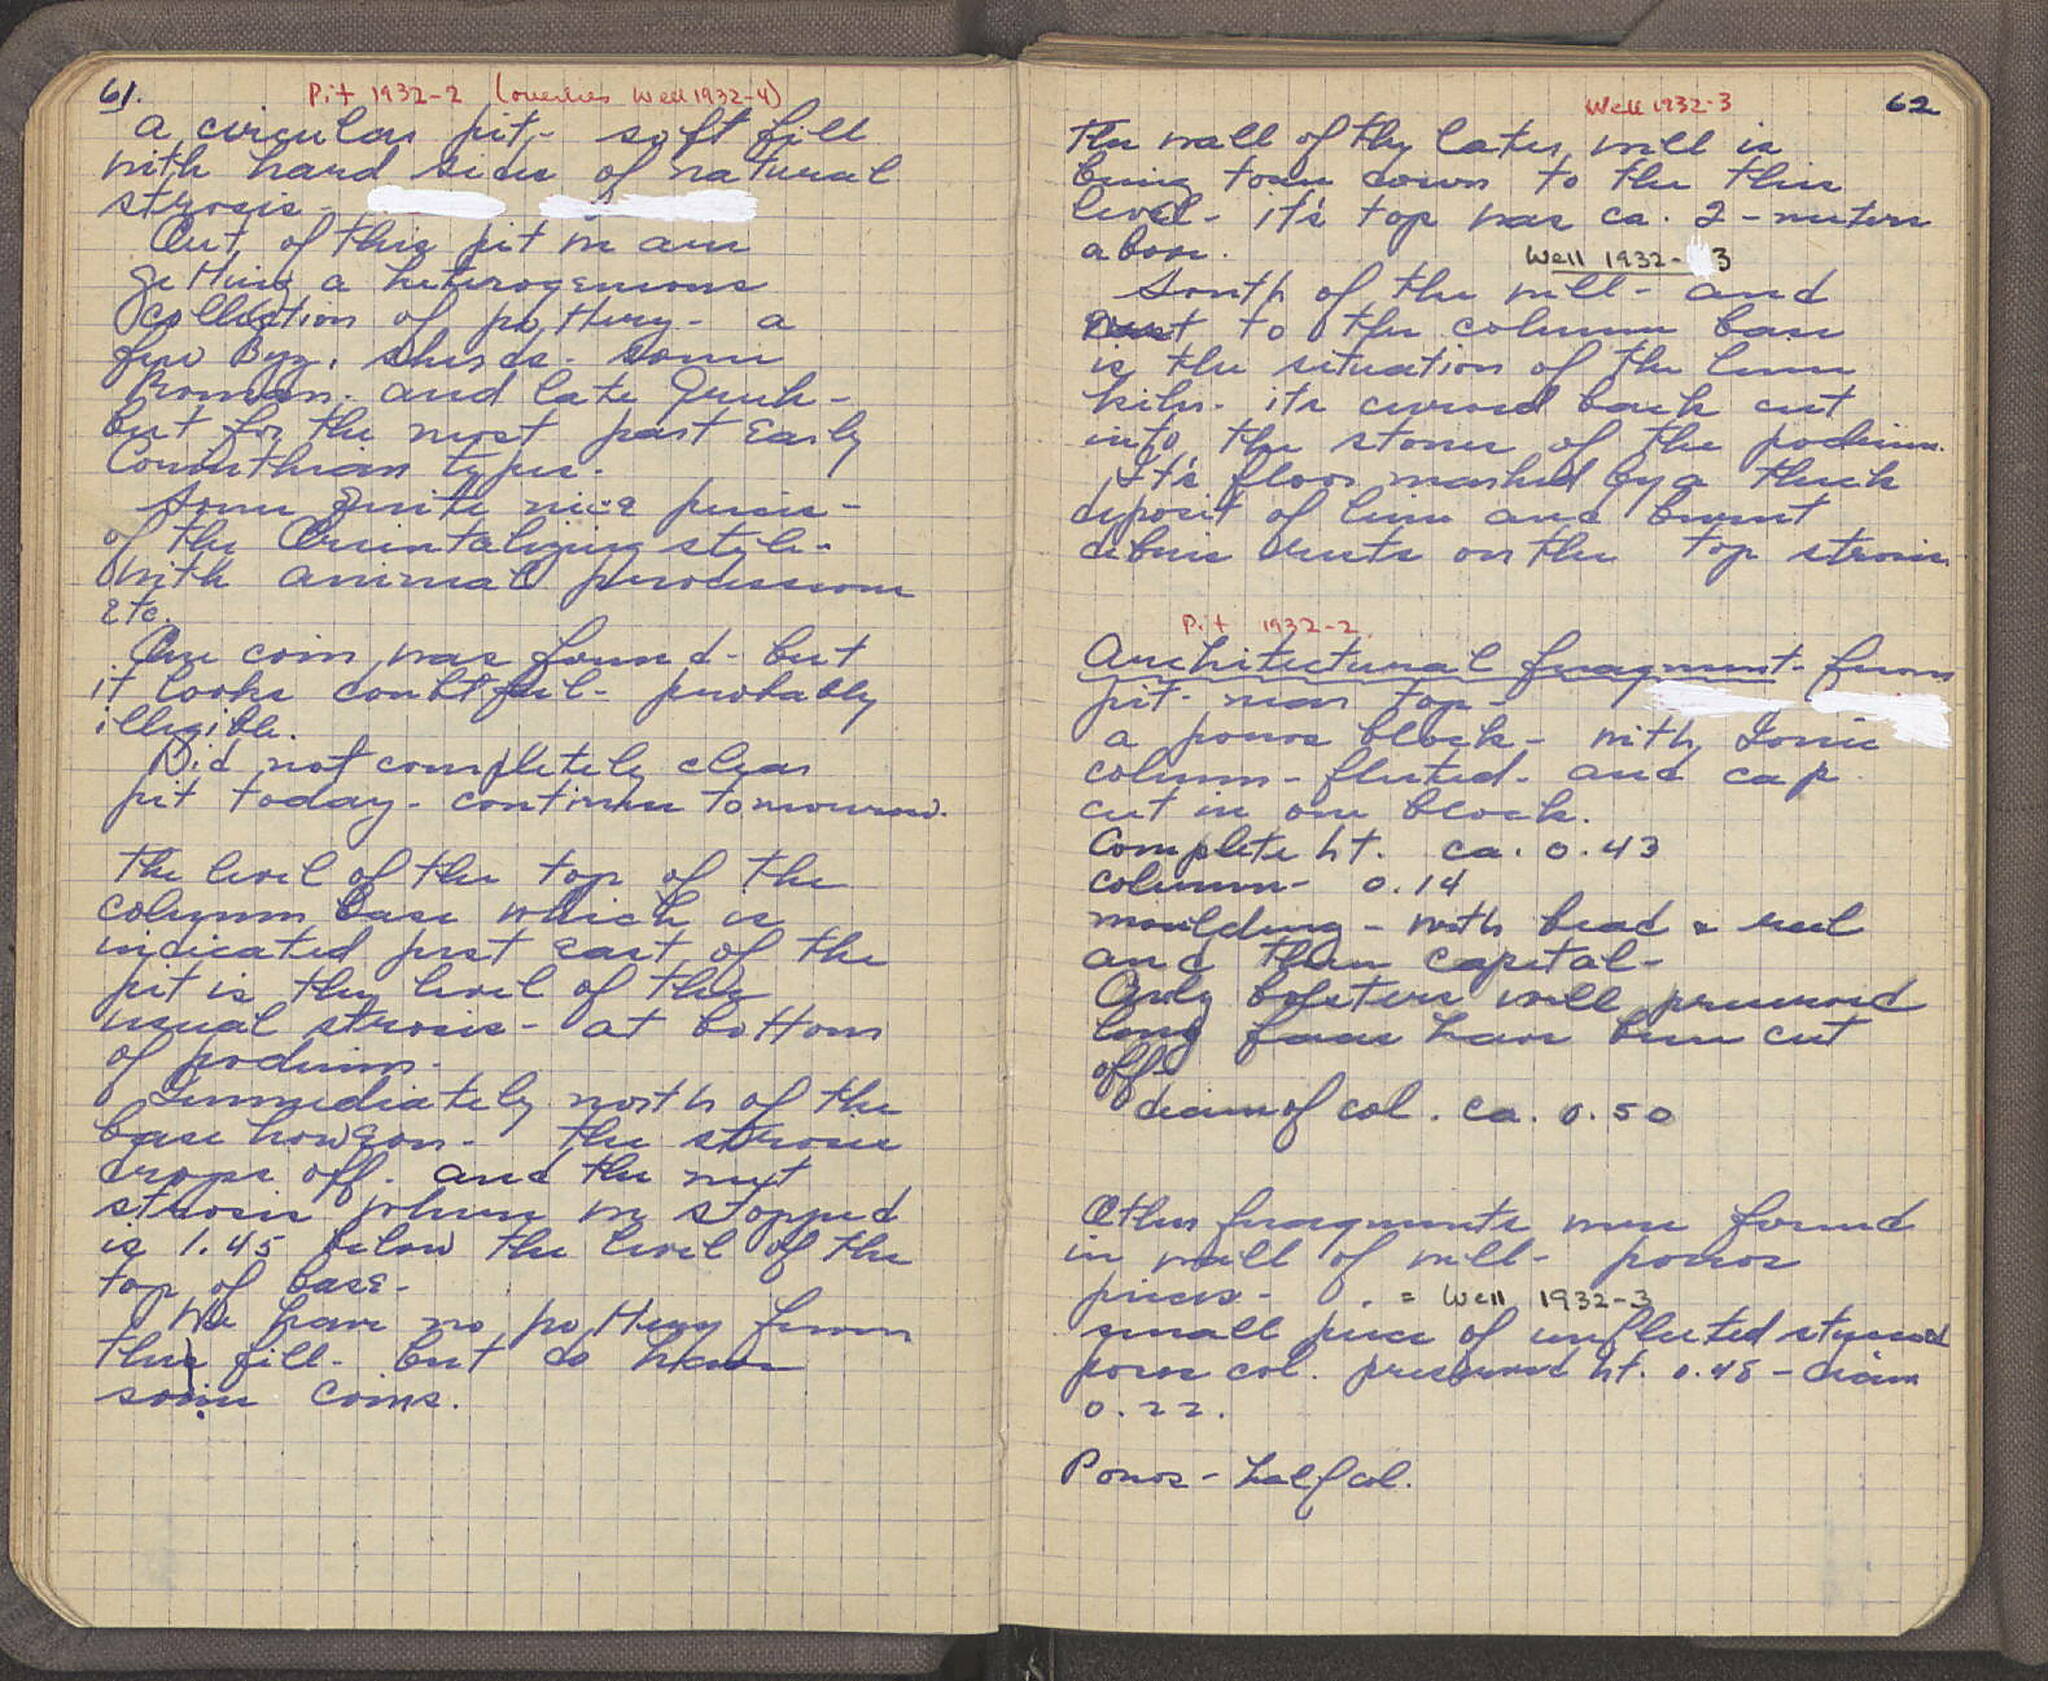 61.
Pit 1932-2 (overlies Well 1932-4)
A circular pit,- soft fill
with hard sides of natural
strosis-
Out of this pit we are
getting a heterogeneous
collection of pottery- a
few Byz. sherds- some
Roman- and late Greek-
but for the most part Early
Corinthian types.
Some quite nice pieces-
of the Orientalizing style-
with animal processions
etc.
One coin was found- but
it looks doubtful- probably
illegible.
Did not completely clear
pit today- continue tomorrow.
The level of the top of the
column base which is
indicated just East of the
pit is the level of the
usual strosis- at bottom
of podium.
Immediately north of the
base however- the strosis
drops off. and the next
strosis where we stopped
is 1.45 below the level of the
top of base-
We have no pottery from
this fill- but do have
some coins.
Well 1932-3
62
The wall of the later well is
being torn down to the this
level- it's top was ca. 2-meters
above.
Well 1932-3
South of the well- and
to the column base
is the situation of the lime
kiln- its curved back cut
into the stones of the podium.
It's floor marked by a thick
deposit of lime and burnt
debris rests on the top strosis
Pit 1932-2
Architectural fragment- from
pit- near top-
a poros block- with Ionic
column- fluted- and cap
cut in one block.
Complete ht. ca. 0.43
column- 0.14
moulding- with bead & reel
and then capital-
Only bolsters well preserved
long faces have been cut
off-
diam of col. ca. 0.50
Other fragments were found
in wall of well- poros
pieces- = Well 1932-3
small piece of unfluted stuccoed
poros col. preserved ht. 0.48 - diam
0.22.
Poros- half col.